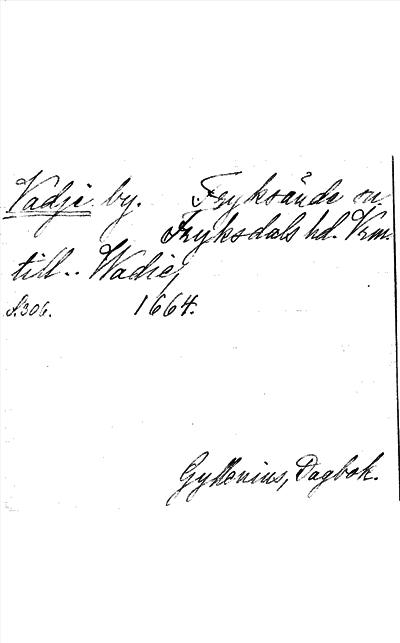 Vadje by. Fryksände sn.
Fryksdals hd. Vrm.
till.. Wadie,
S.306. 1664.
Gyllenius, Dagbok.